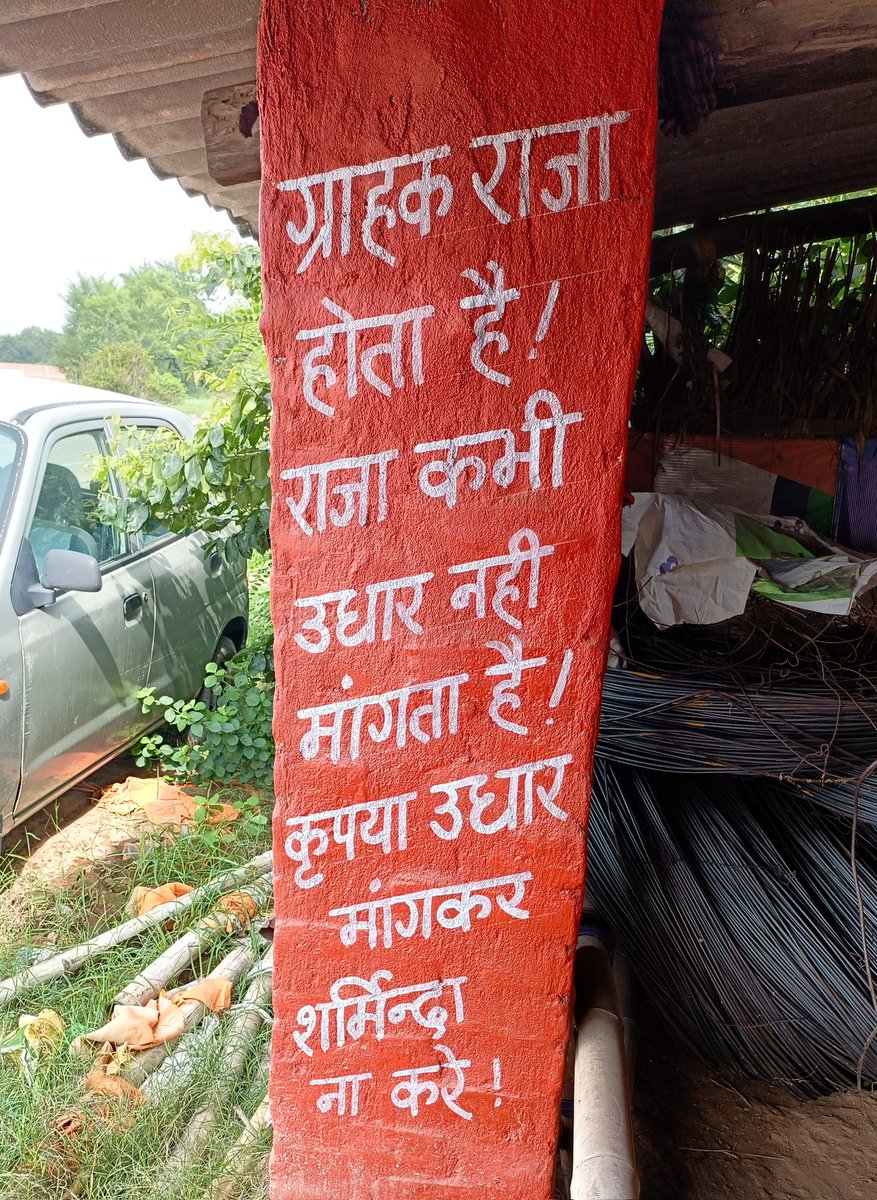 ग्राहक राजा
होता है!
राजा कभी
उधार नही
मांगता है!
कृपया उधार
मांगकर
शर्मिन्दा
ना करे!